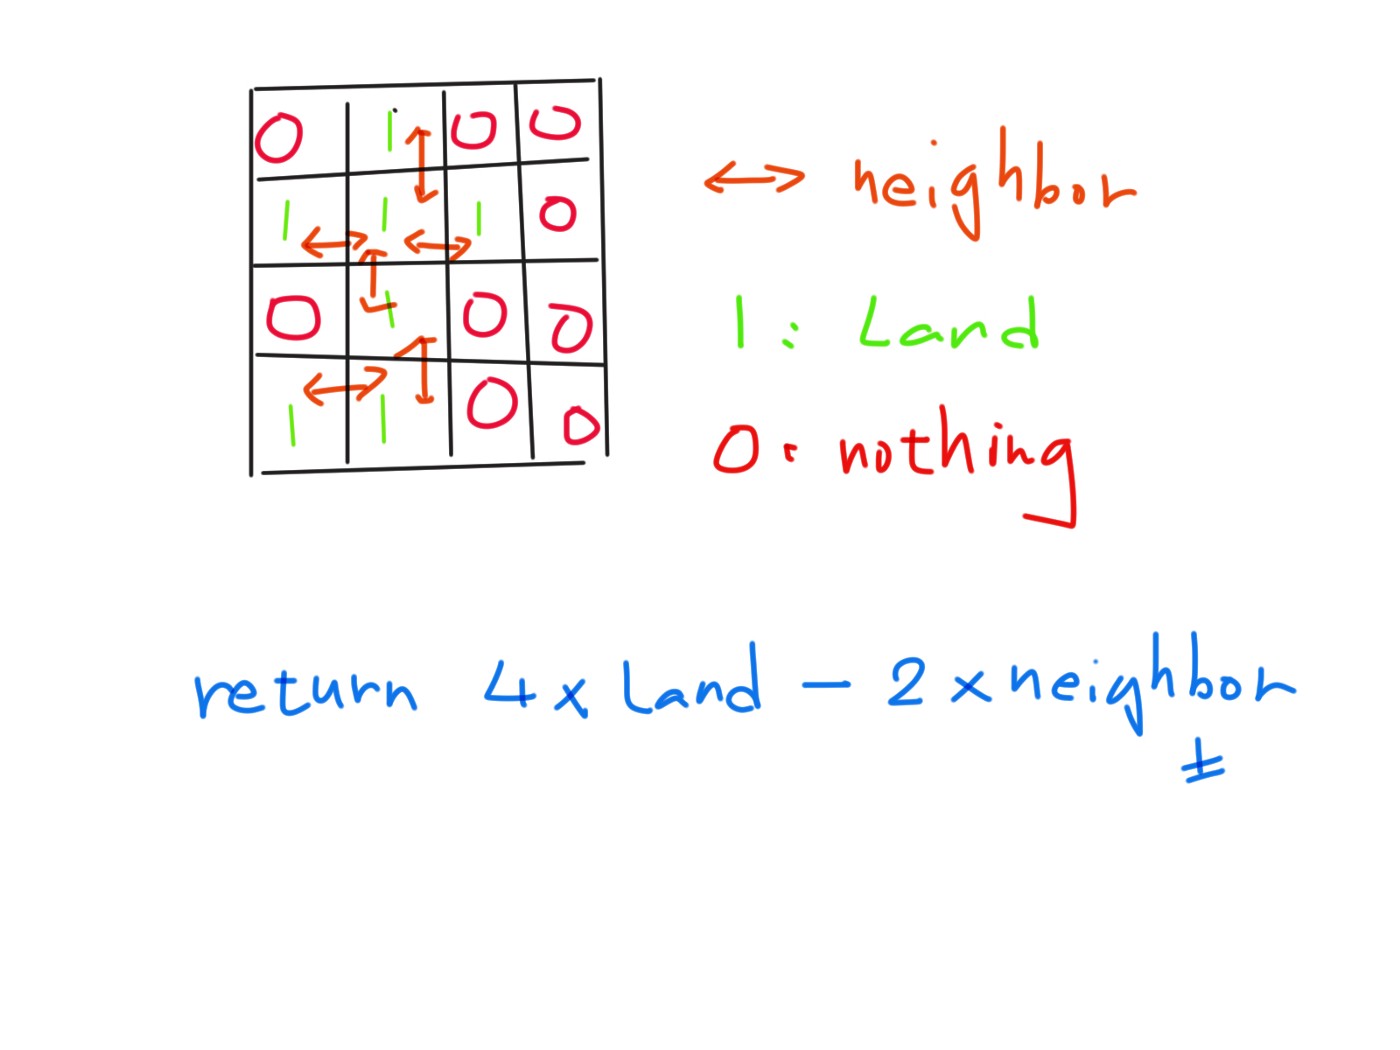 0 1 0 0
1 1 1 0
0 1 0 0
1 1 0 0
↔ neighbor
1 : Land
0 : nothing
return 4 x Land - 2 x neighbor